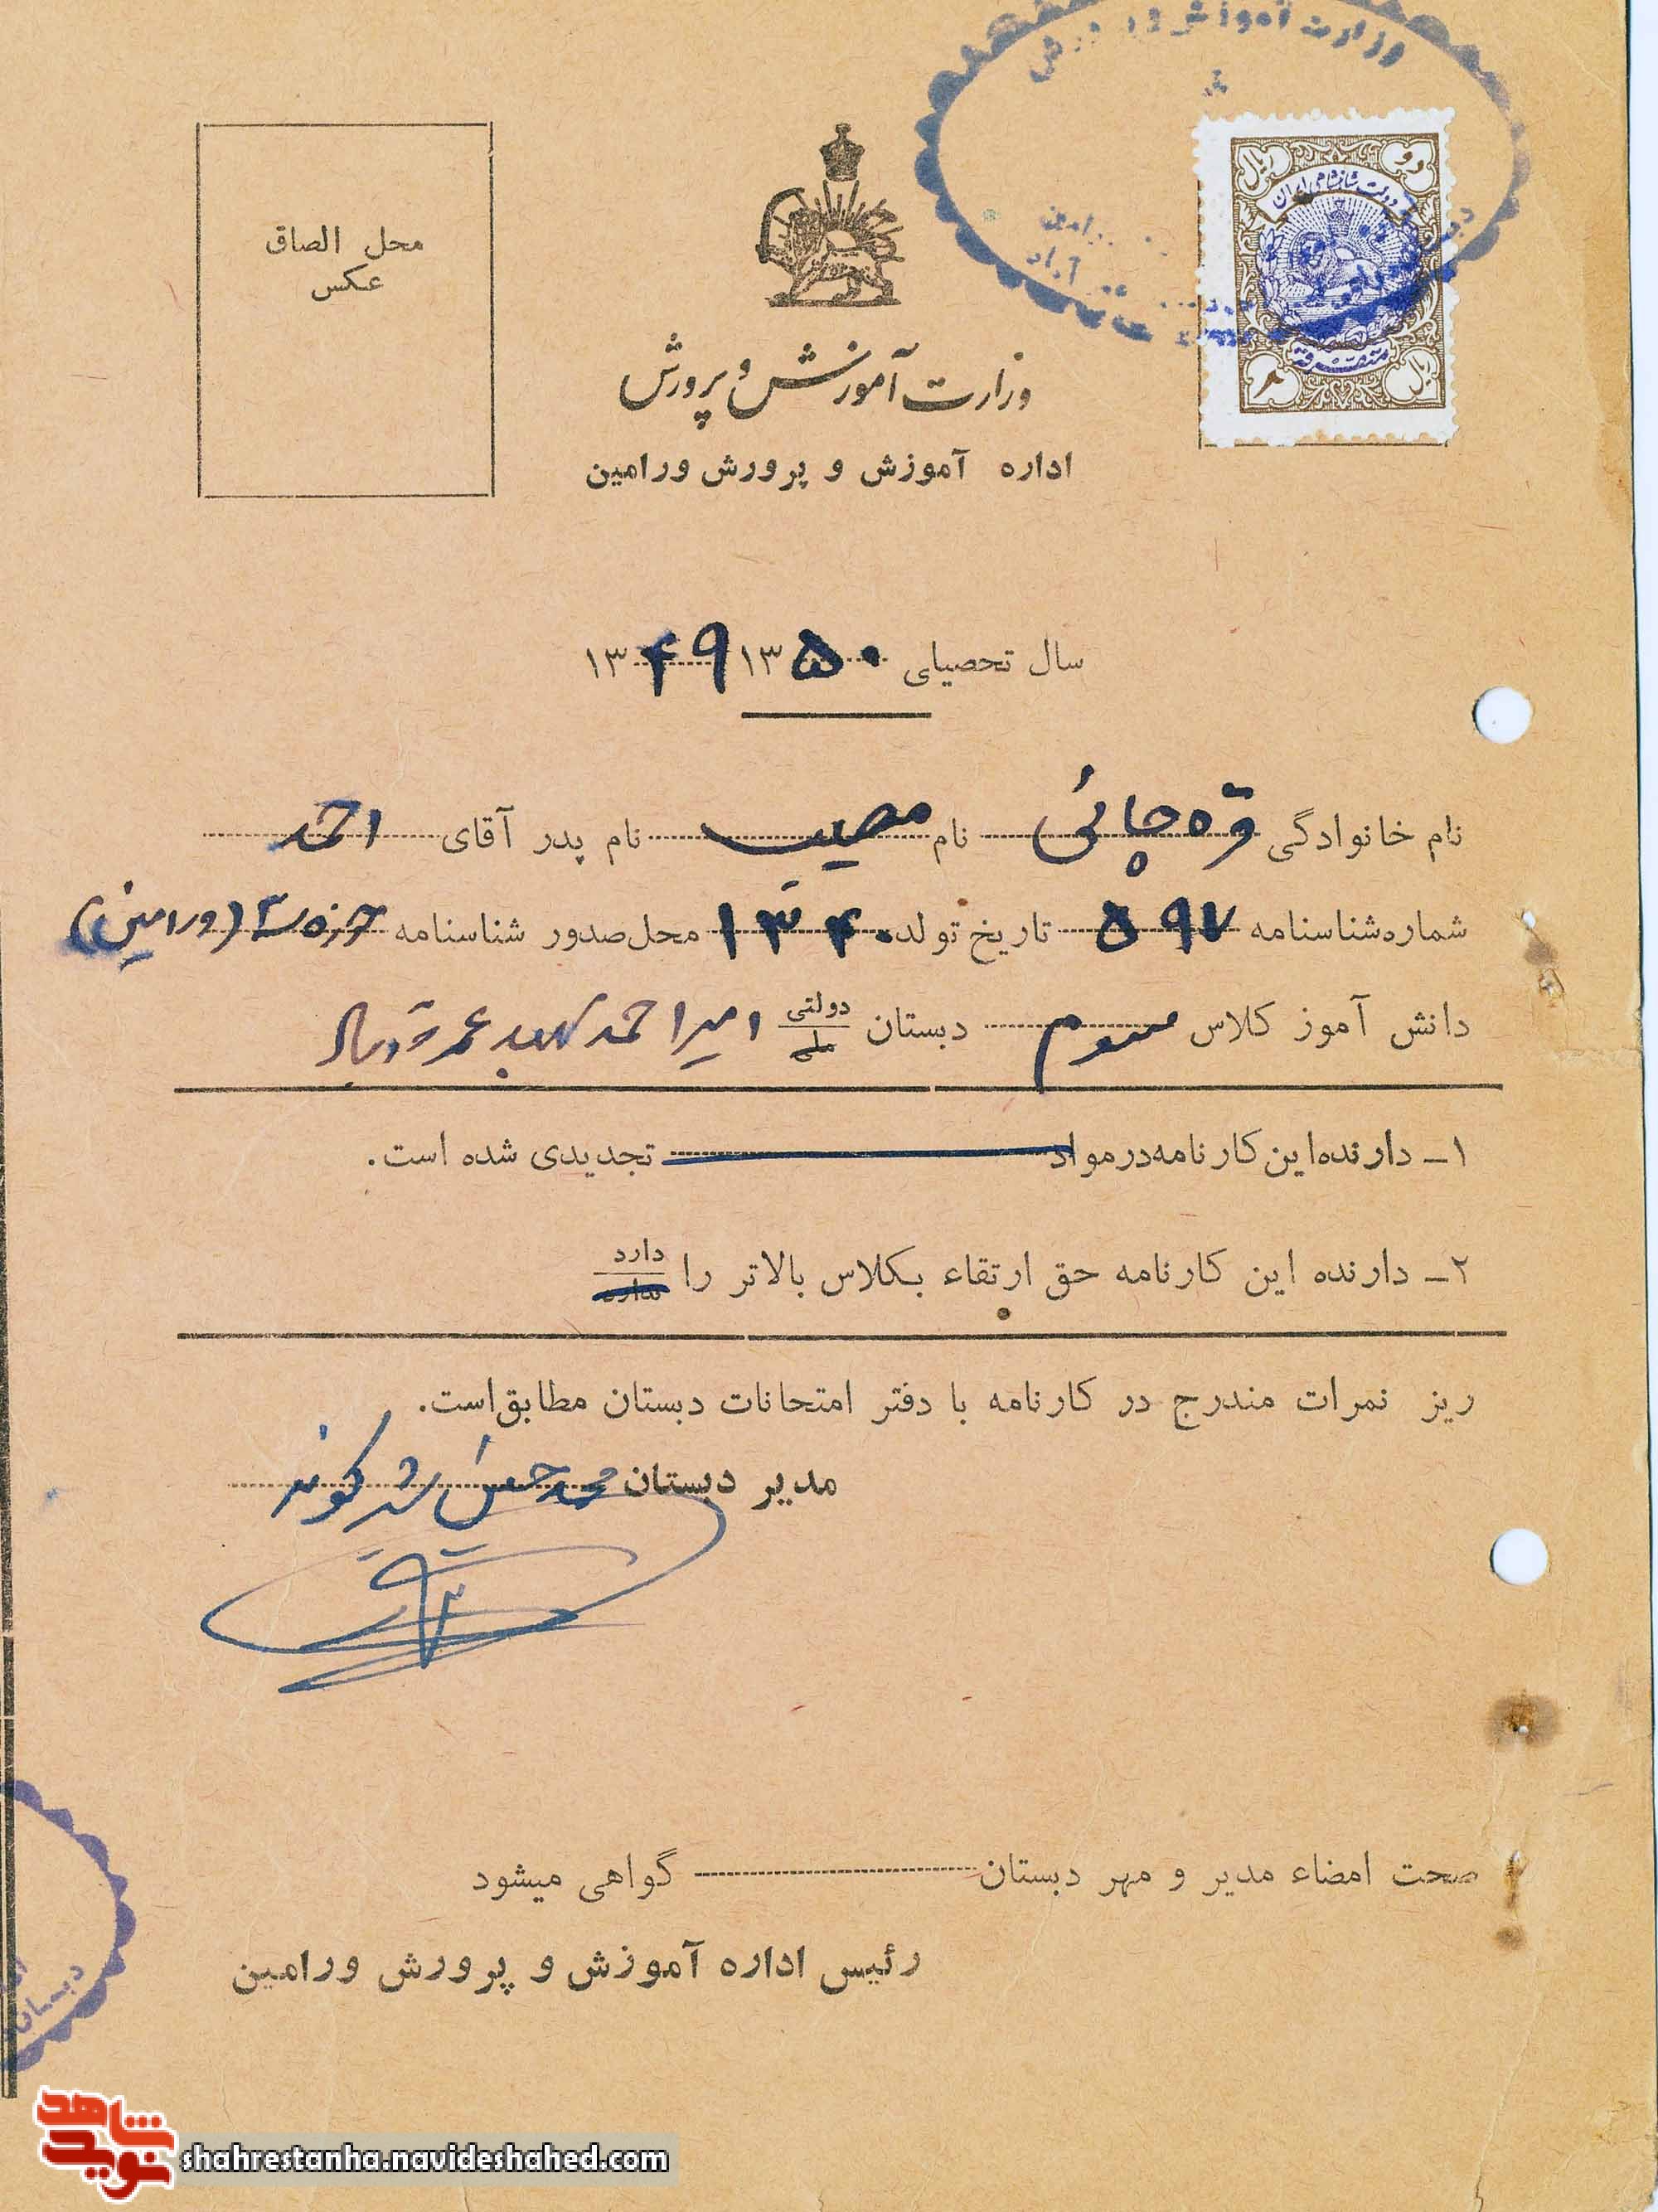 وزارت آموزش و پرورش
رو
ریال
دولت شاهنشاهی ایران
متفرقه
ریال
محل الصاق
عکس
وزارت آموزش و پرورش
اداره آموزش و پرورش ورامین
سال تحصیلی ۱۳۵۰ ۱۳۴۹
نام خانوادگی قره چائی نام مصیب نام پدر آقای احمد
شماره شناسنامه ۵۹۷ تاریخ تولد ۱۳۴۰ محل صدور شناسنامه حوزه ۳ (ورامین)
دانش آموز کلاس سوم دبستان دولتی ملی امیر احمد
۱ـ دارنده این کارنامه در مواد تجدیدی شده است.
۲ـ دارنده این کارنامه حق ارتقاء بکلاس بالاتر را دارد ندارد
ریز نمرات مندرج در کارنامه با دفتر امتحانات دبستان مطابق است.
مدیر دبستان محمد حسن شیرکوند
صحت امضاء مدیر و مهر دبستان گواهی میشود
رئیس اداره آموزش و پرورش ورامین
دبستان
شاهد
نوید
shahrestanha.navideshahed.com